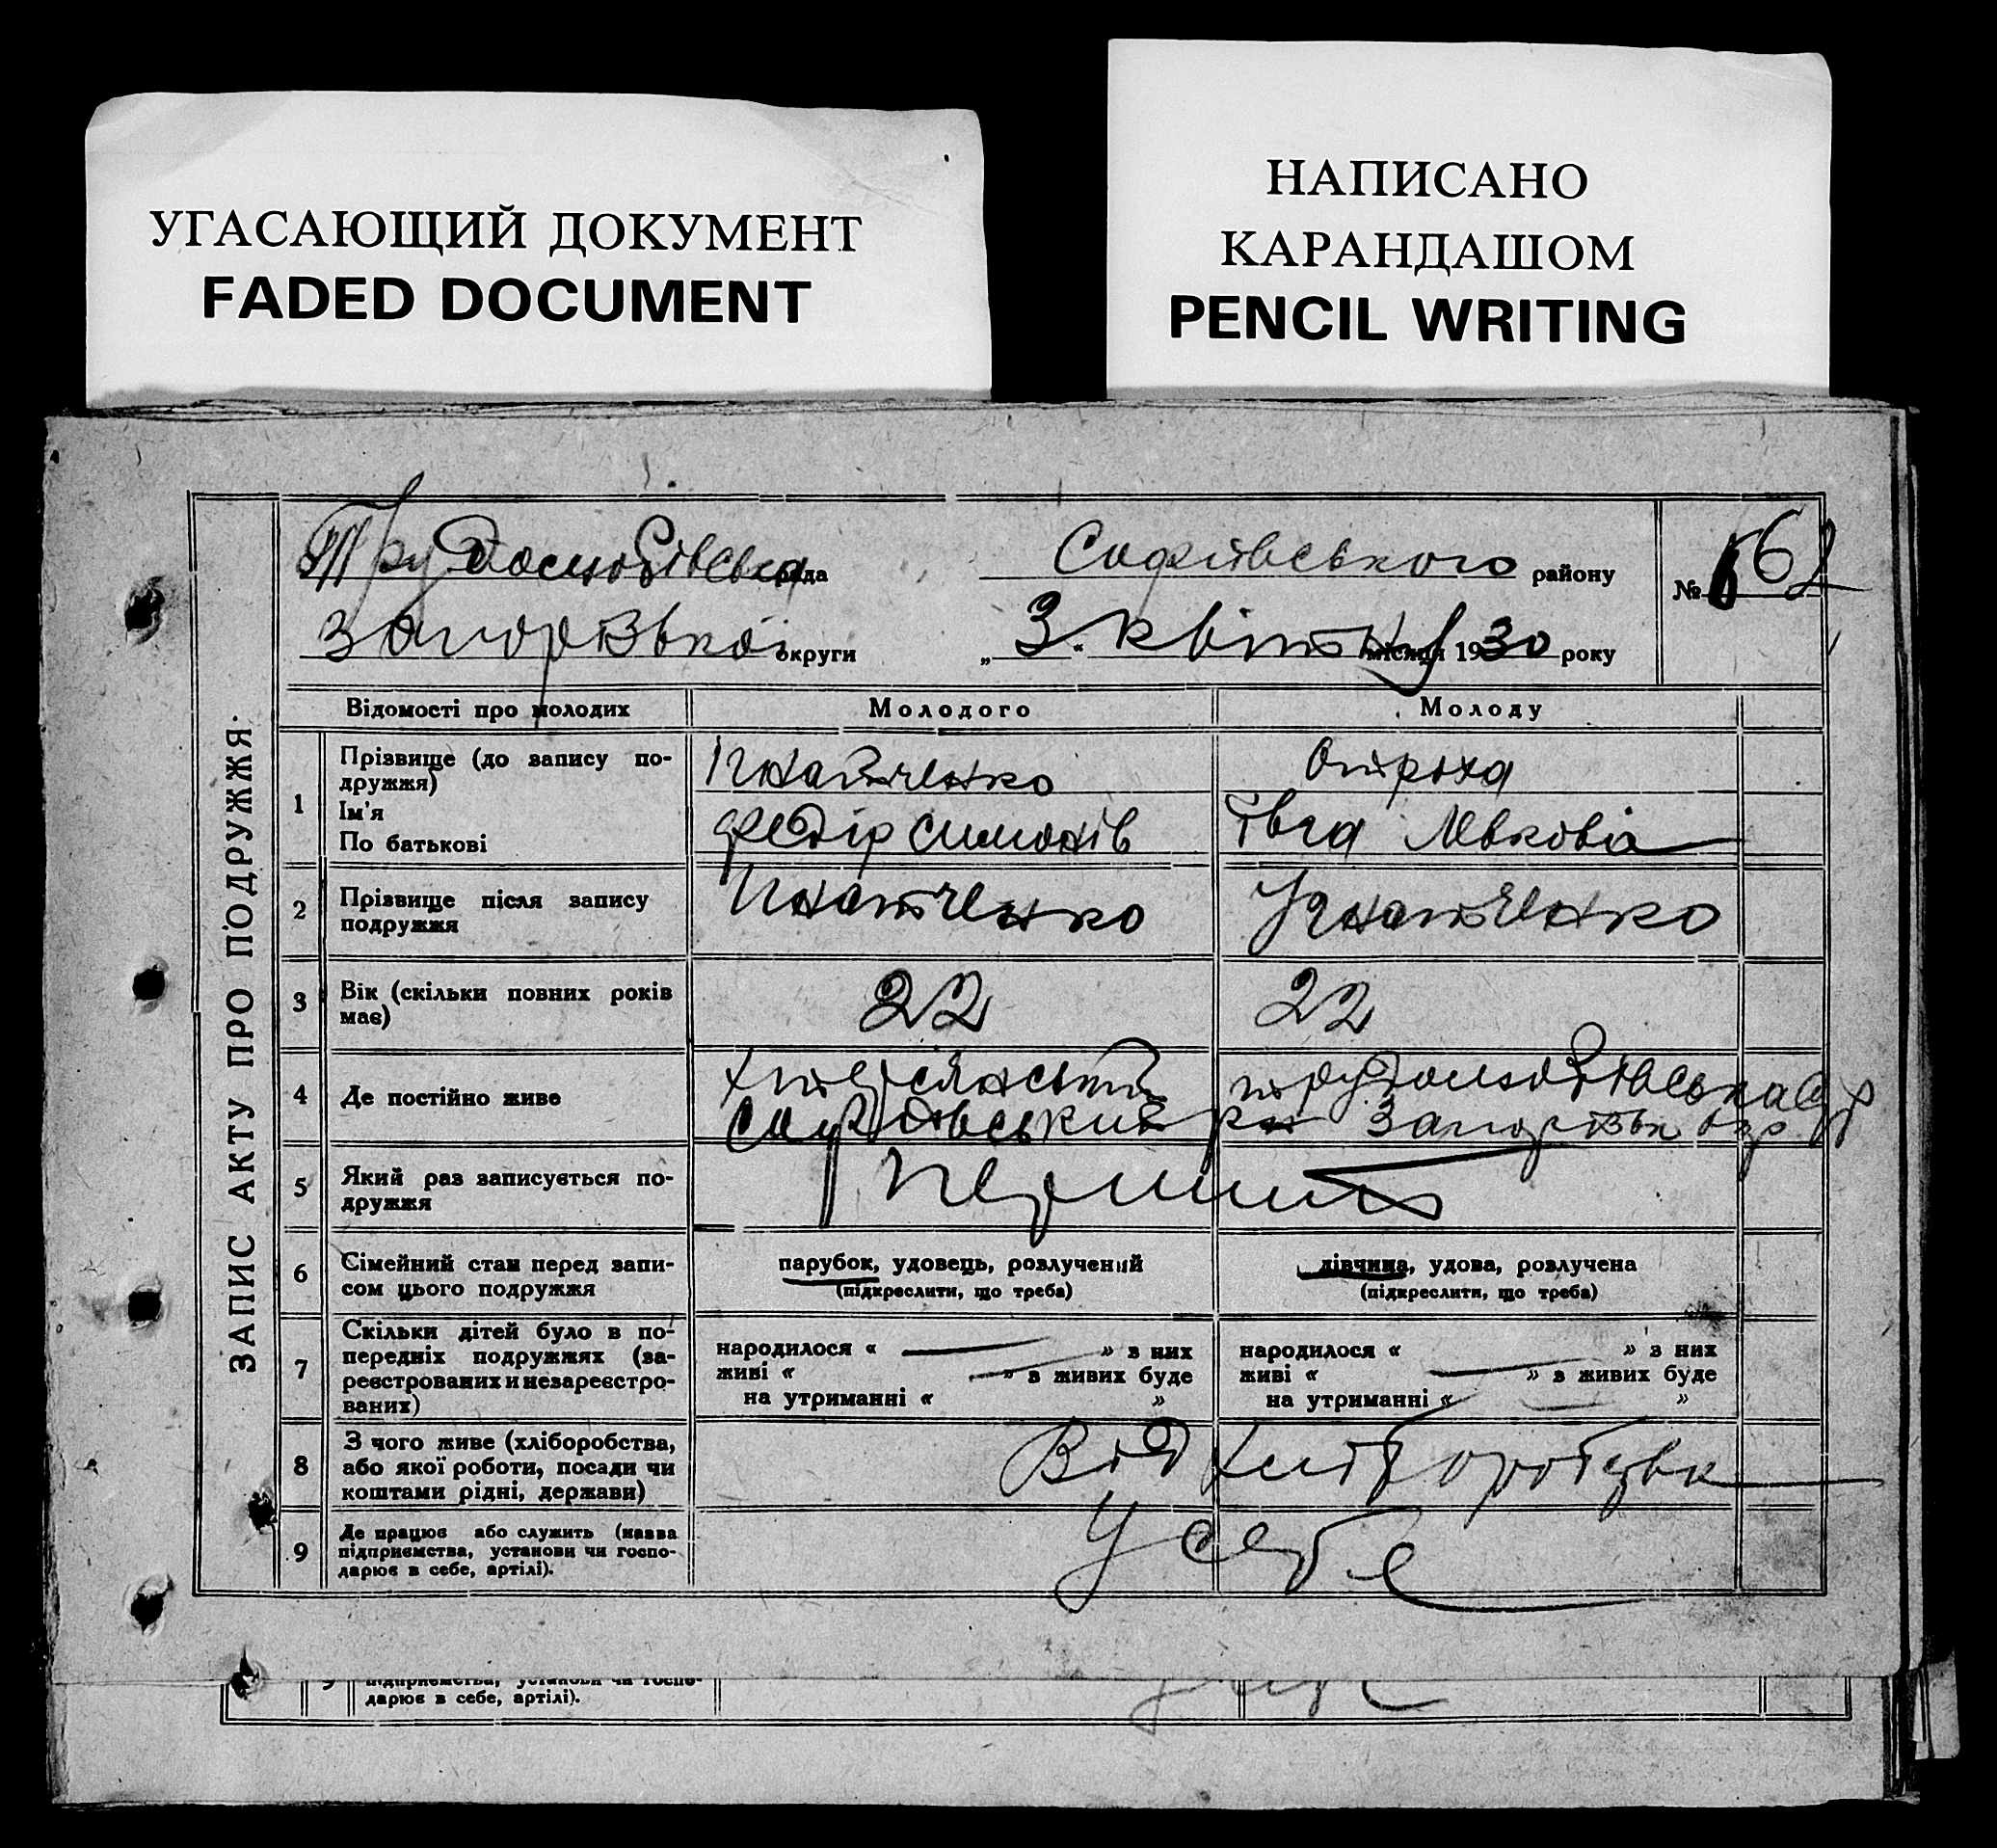 УГАСАЮЩИЙ ДОКУМЕНТ
FADED DOCUMENT
НАПИСАНО
КАРАНДАШОМ
PENCIL WRITING
ЗАПИС АКТУ ПРО ПОДРУЖЖЯ.
Трудолюбівська рада Софіівського району №
Запорізької округи „3." квітня місяця 1930 року
Відомості про молодих Молодого Молоду
1 Прізвище (до запису по-
дружжя) Ігнатченко Отроха
Ім'я
По батькові Федір Симонів Ївга Левковіа
2 Прізвище після запису
подружжя Ігнатченко Ігнатченко
3 Вік (скільки повних років
має) 22 22
4 Де постійно живе трудолюбівська с/р
Софіівський рн Запорізьк окр
5 Який раз записується по-
дружжя перший
6 Сімейний стан перед запи-
сом цього подружжя
парубок, удовець, розлучений
(підкреслити, що треба)
дівчина, удова, розлучена
(підкреслити, що треба)
7 Скільки дітей було в по-
передніх подружжях (за-
реєстрованих и незареєстро-
ваних)
народилося « — » з них
живі « — » в живих буде
на утриманні « »
народилося « » з них
живі « — » в живих буде
на утриманні « — »
8 З чого живе (хліборобства,
або якої роботи, посади чи
коштами рідні, держави)
Від хліборобства
9 Де працює або служить (назва
підприємства, установи чи госпо-
дарює в себе, артілі).
У себе
9 підприємства, установи чи госпо-
дарює в себе, артілі).